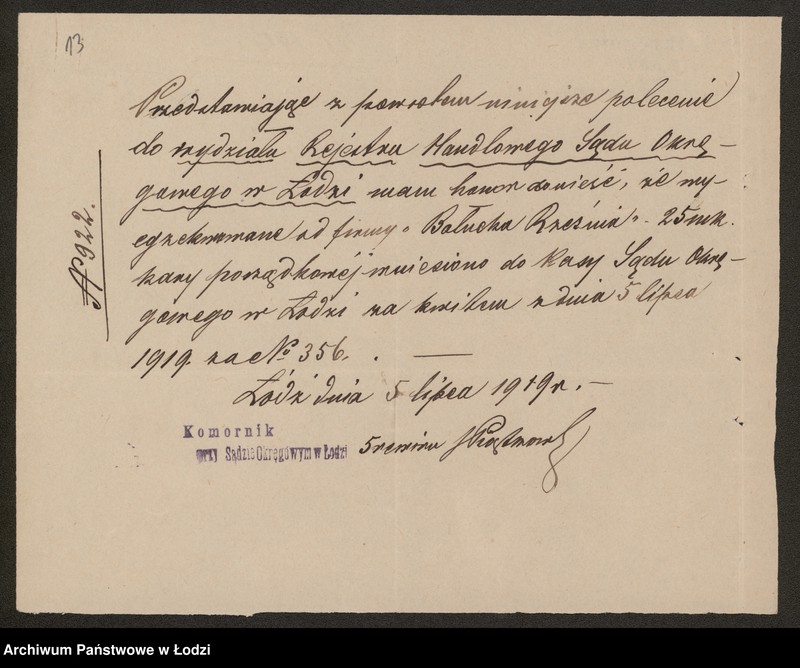 13
Przedstawiając z powrotem niniejsze polecenie
do wydziału Rejestru Handlowego Sądu Okrę-
gowego w Łodzi mam honor donieść, że wy-
egzekwowane od firmy "Bałucka Rzeźnia" - 25 mk.
kary porządkowéj wniesiono do Kasy Sądu Okrę-
gowego w Łodzi za kwitem z dnia 5 lipca
1919 za No 356. —
Łódź dnia 5 lipca 1919 r. —
No 922.
Komornik
przy Sądzie Okręgówym w Łodzi
5 rewiru
Archiwum Państwowe w Łodzi